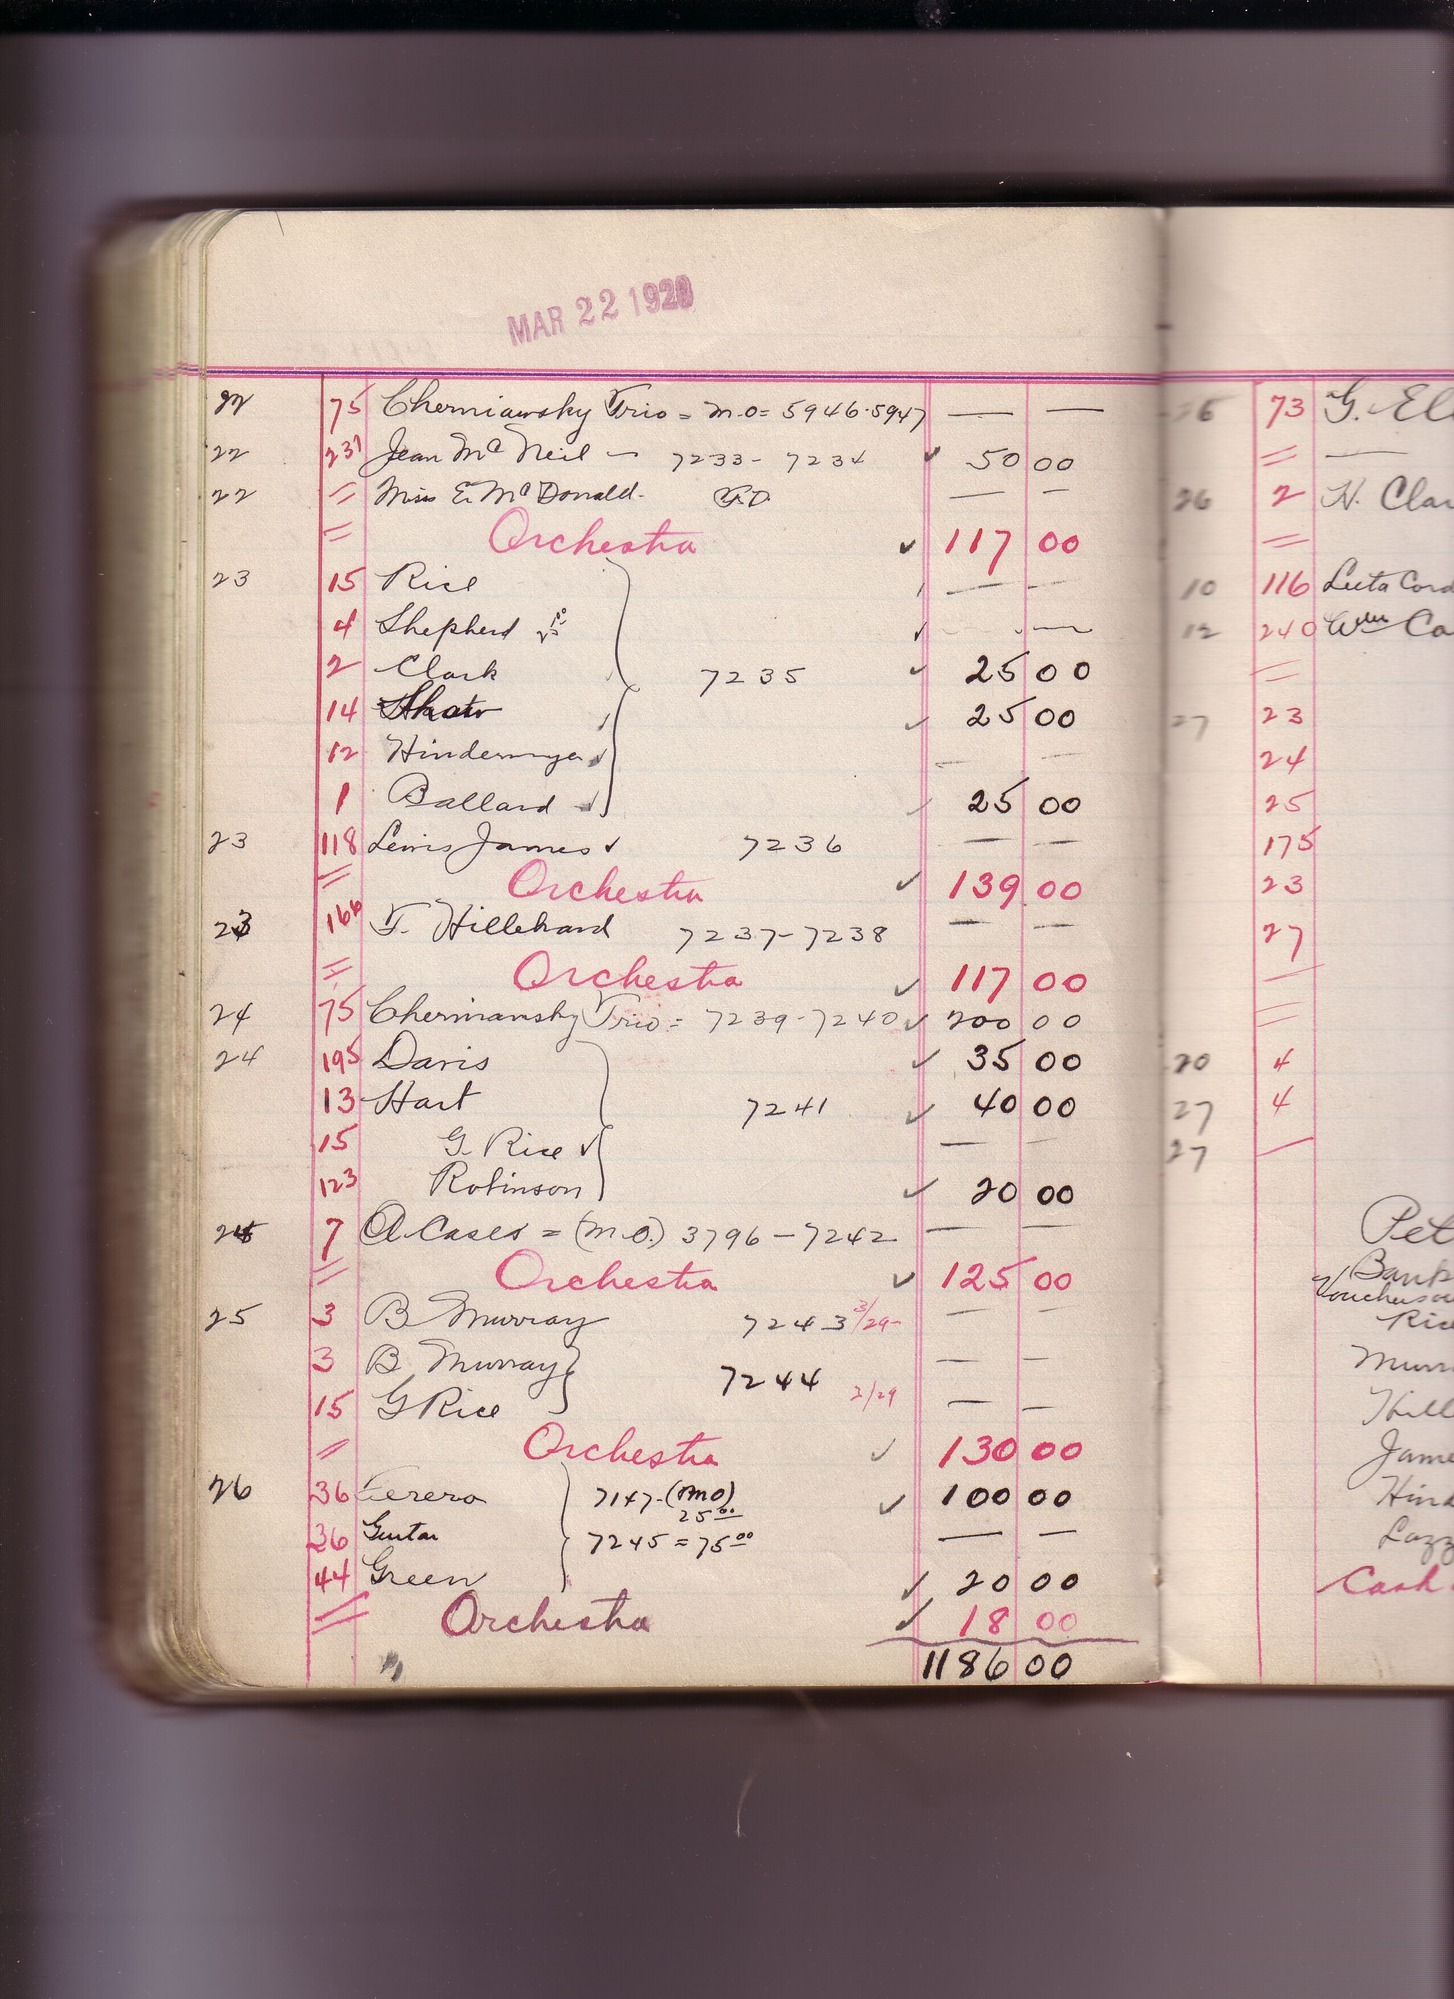 MAR 22 1920
22 75 Cherniavsky Trio = M.O = 5946-5947 — —
22 237 Jean McNeil — 7233 - 7234 ✓ 50 00
22 = Miss E. McDonald. — —
= Orchestra ✓ 117 00
23 15 Rice — —
4 Shepherd ✓ — —
2 Clark 7235 ✓ 25 00
14 Shaw ✓ 25 00
12 Hindermyer ✓ — —
1 Ballard ✓ 25 00
23 118 Lewis James ✓ 7236 — —
= Orchestra ✓ 139 00
23 166 F. Hillebrand 7237-7238 — —
= Orchestra ✓ 117 00
24 75 Cherniavsky Trio = 7239-7240 ✓ 200 00
24 195 Davis ✓ 35 00
13 Hart 7241 ✓ 40 00
15 G. Rice ✓ — —
123 Robinson ✓ 20 00
24 7 A Cases = (M.O.) 3796 - 7242 — —
= Orchestra ✓ 125 00
25 3 B Murray 7243 3/29 — —
3 B Murray — —
7244 3/29
15 G Rice — —
= Orchestra ✓ 130 00
26 36 Ferera 7147-(MO) 25 00 ✓ 100 00
36 Guitar 7245 = 75 00 — —
44 Green ✓ 20 00
= Orchestra ✓ 18 00
1186 00
73 G.
=
26 2 H. Clar
=
10 116 Leeta Cord
12 240 Wm Co
=
27 23
24
25
175
23
27
—
=
20 4
27 4
27 —
Pet
Bank
Vouchers
Rice
Murr
Hill
Jame
Hind
Lazz
Cash